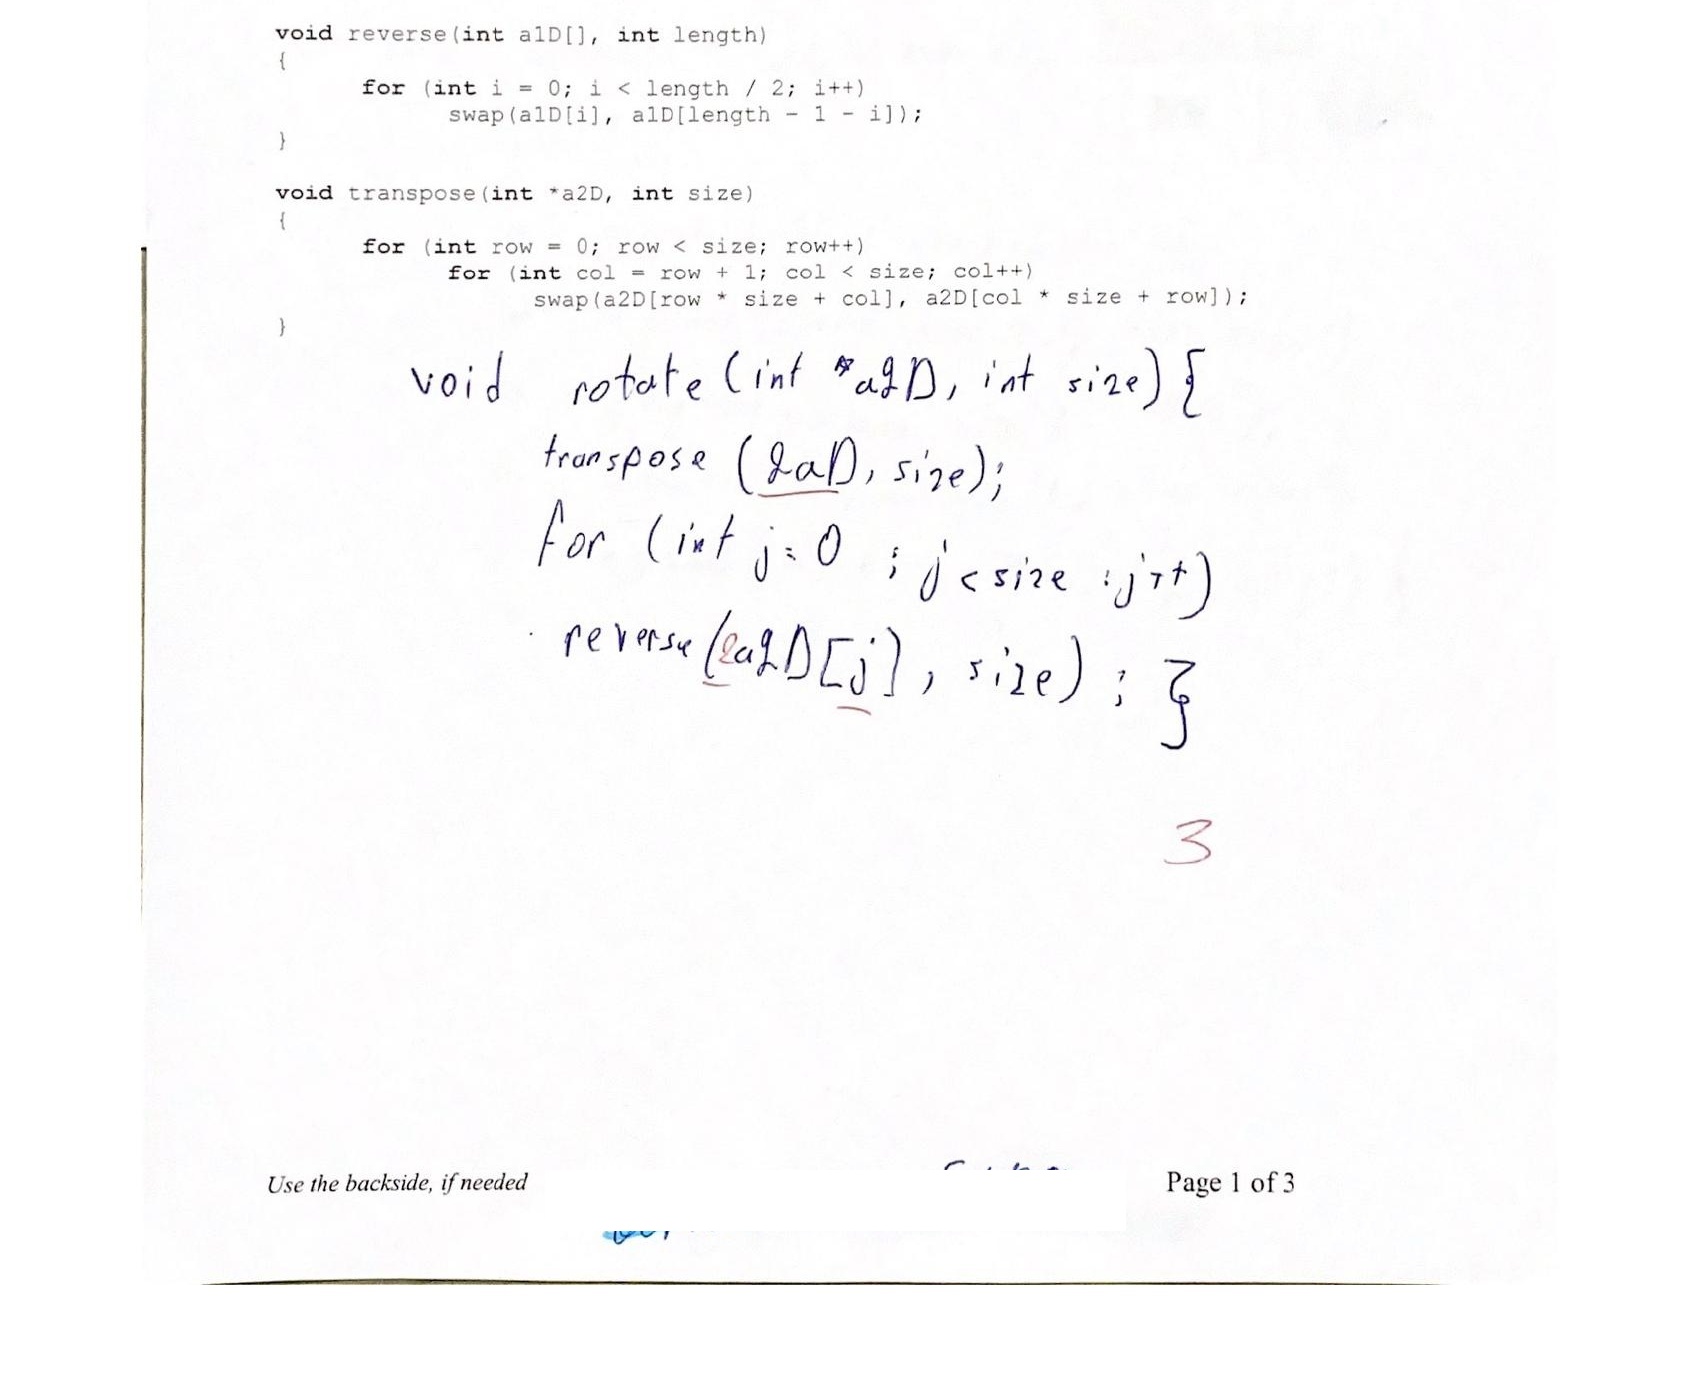 void reverse(int a1D[], int length)
{
for (int i = 0; i < length / 2; i++)
swap(a1D[i], a1D[length - 1 - i]);
}
void transpose(int *a2D, int size)
{
for (int row = 0; row < size; row++)
for (int col = row + 1; col < size; col++)
swap(a2D[row * size + col], a2D[col * size + row]);
}
void rotate (int *a2D, int size) {
transpose (2aD, size);
for (int j=0 ; j<size ; j++)
reverse(&a2D[j], size) ; }
3
Use the backside, if needed Page 1 of 3